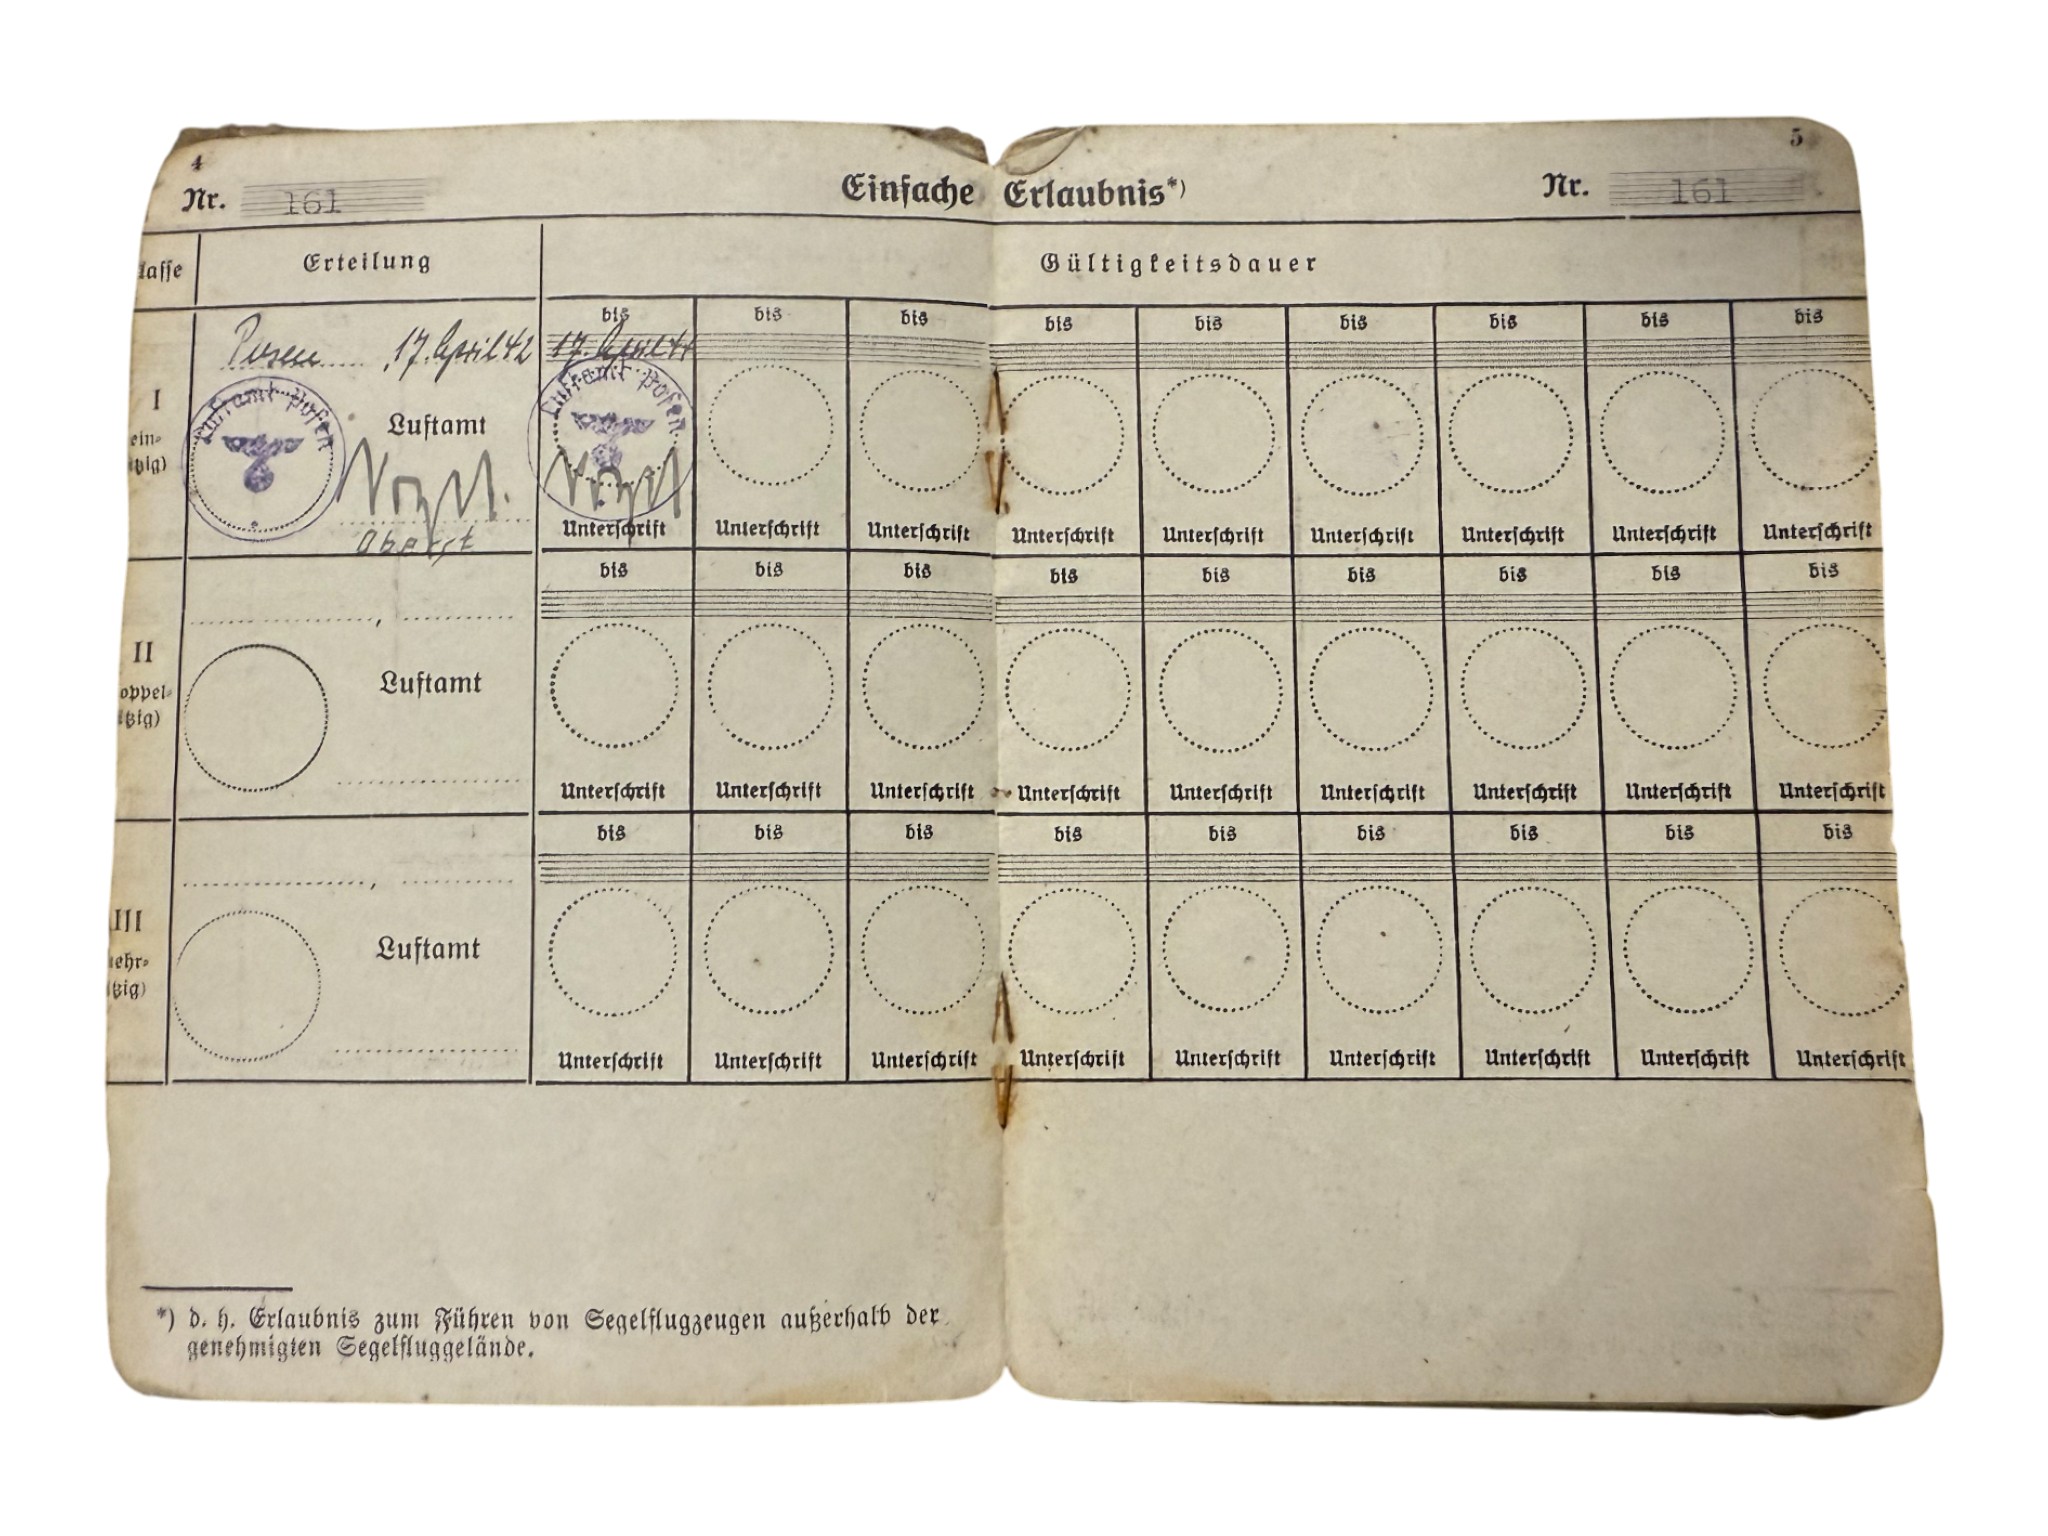 4
Nr. 161
Einfache Erlaubnis*)
Nr. 161
5
lasse
Erteilung
Gültigkeitsdauer
I
ein-
tzig)
Posen ...., 17. April 42
Luftamt Posen
Luftamt
Oberst
bis
17. April 44
Luftamt Posen
Unterschrift
bis
Unterschrift
bis
Unterschrift
bis
Unterschrift
bis
Unterschrift
bis
Unterschrift
bis
Unterschrift
bis
Unterschrift
bis
Unterschrift
II
oppel-
itzig)
Luftamt
bis
Unterschrift
bis
Unterschrift
bis
Unterschrift
bis
Unterschrift
bis
Unterschrift
bis
Unterschrift
bis
Unterschrift
bis
Unterschrift
bis
Unterschrift
III
nehr-
itzig)
Luftamt
bis
Unterschrift
bis
Unterschrift
bis
Unterschrift
bis
Unterschrift
bis
Unterschrift
bis
Unterschrift
bis
Unterschrift
bis
Unterschrift
bis
Unterschrift
*) d. h. Erlaubnis zum Führen von Segelflugzeugen außerhalb der
genehmigten Segelfluggelände.